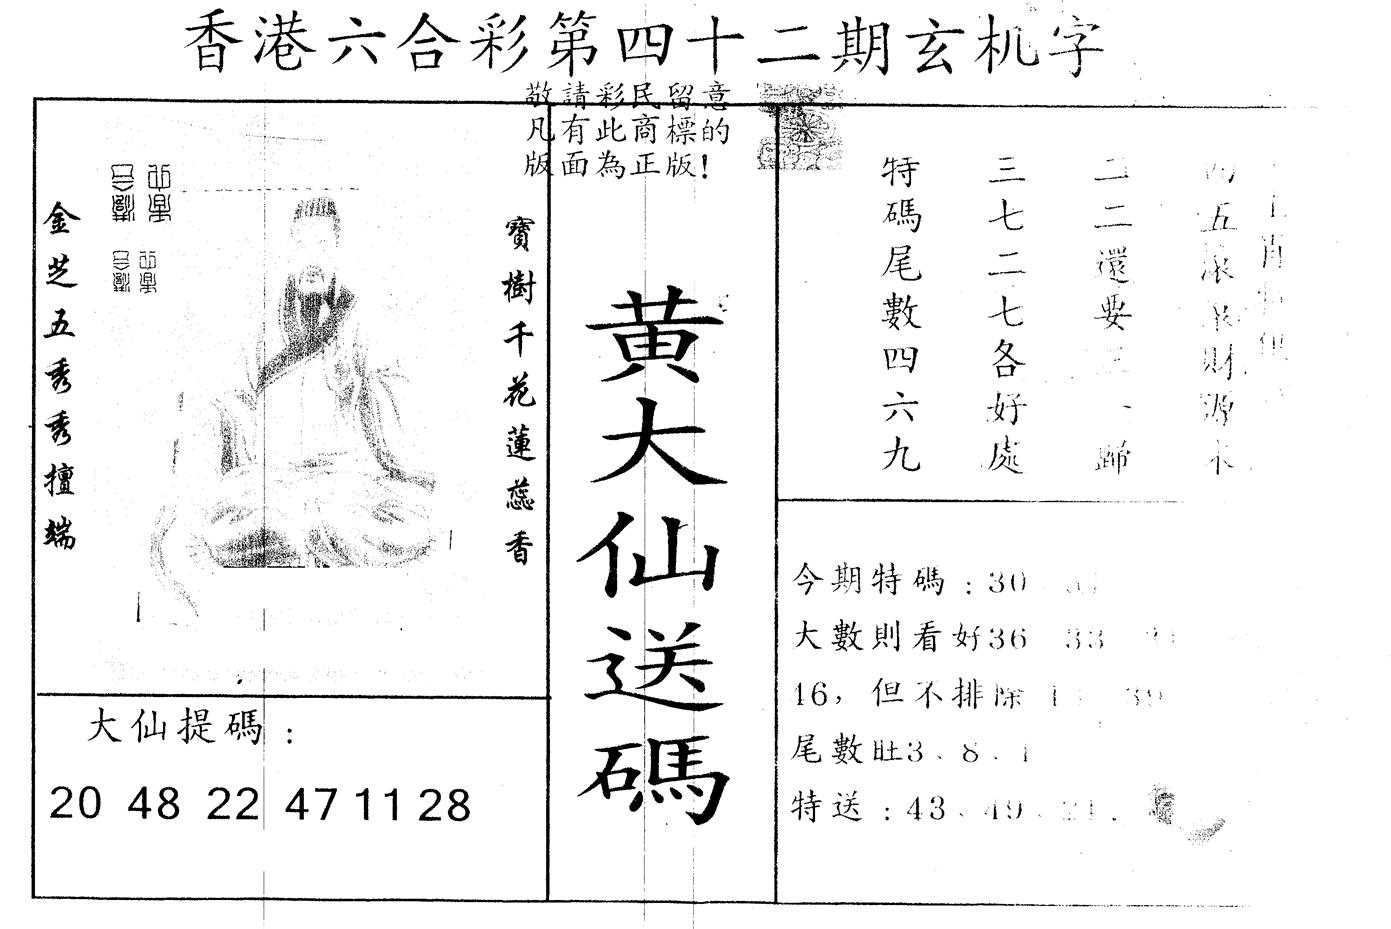 香港六合彩第四十二期玄机字
敬請彩民留意
凡有此商標的
版面為正版!
金芝五秀秀擅端
寶樹千花蓮蕊香
黄大仙送碼
特碼尾數四六九
三七二七各好處
二二還要三一歸
四五滾滾財源來
今期特碼:30
大數則看好36 33
46,但不排除 39
尾數旺3、8、1
特送:43、49、21.
大仙提碼:
20 48 22 47 11 28